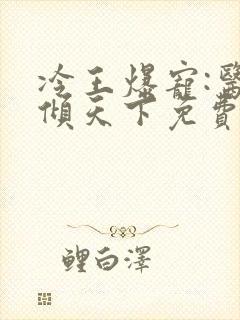 冷王爆寵:醫
傾天下免費
鯉白澤